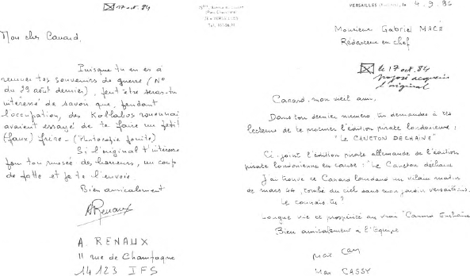 17 oct. 84
Mon cher Canard,
Puisque tu en es à
remuer tes souvenirs de guerre (N°
du 29 août dernier), peut être seras-tu
intéressé de savoir que, pendant
l'occupation, des Kollabos
avaient essayé de te faire un petit
(faux) frère. (Photocopie jointe)
Si l'original t'intéresse
pour ton musée des horreurs, un coup
de fil et je te l'envoie
Bien amicalement
A. Renaux
A. RENAUX
11 rue de Champagne
14 123 IFS
VERSAILLES 4.9.84
Monsieur Gabriel MACÉ
Rédacteur en chef
le 17 oct. 84
proposé acquérir
l'original
Canard mon vieil ami,
Dans ton dernier numéro tu demandes à tes
lecteurs de te l'édition pirate londonienne :
"LE CANETON DECHAINÉ"
Ci-joint l'édition pirate allemande de l'édition
pirate londonienne en cause : "Le Caneton déchaîné"
J'ai trouvé ce Canard un vilain matin
de mars 44, tombé du ciel sans mon
Le connais tu ?
Longue vie et prospérité au vrai "Canard Enchaîné"
Bien amicalement à l'Equipe
Max CASSY